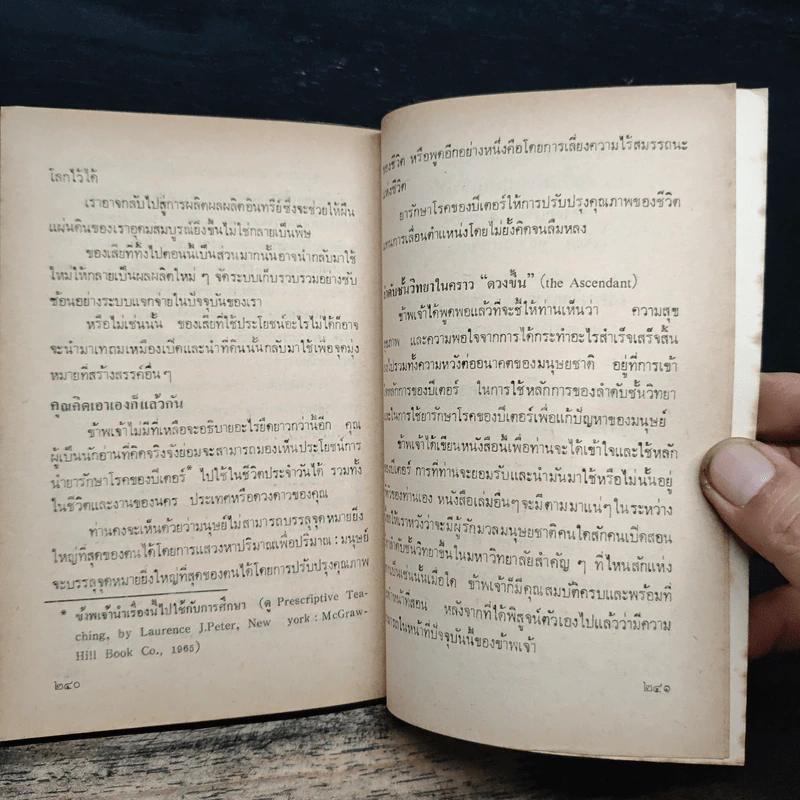 โลกไว้ได้
เราอาจกลับไปสู่การผลิตผลผลิตอินทรีย์ซึ่งจะช่วยให้ผืน
แผ่นดินของเราอุดมสมบูรณ์ยิ่งขึ้นไม่ใช่กลายเป็นพิษ
ของเสียที่ทิ้งไปตอนนี้เป็นส่วนมากนั้นอาจนำกลับมาใช้
ใหม่ให้กลายเป็นผลผลิตใหม่ ๆ จัดระบบเก็บรวบรวมอย่างซับ
ซ้อนอย่างระบบแจกจ่ายในปัจจุบันของเรา
หรือไม่เช่นนั้น ของเสียที่ใช้ประโยชน์อะไรไม่ได้ก็อาจ
จะนำมาเทถมเหมืองเปิดและนำที่ดินนั้นกลับมาใช้เพื่อจุดมุ่ง
หมายที่สร้างสรรค์อื่นๆ
คุณคิดเอาเองก็แล้วกัน
ข้าพเจ้าไม่มีที่เหลือจะอธิบายอะไรยืดยาวกว่านี้อีก คุณ
ผู้เป็นนักอ่านที่คิดจริงจังย่อมจะสามารถมองเห็นประโยชน์การ
นำยารักษาโรคของปีเตอร์* ไปใช้ในชีวิตประจำวันได้ รวมทั้ง
ในชีวิตและงานของนคร ประเทศหรือดวงดาวของคุณ
ท่านคงจะเห็นด้วยว่ามนุษย์ไม่สามารถบรรลุจุดหมายยิ่ง
ใหญ่ที่สุดของตนได้โดยการแสวงหาปริมาณเพื่อปริมาณ : มนุษย์
จะบรรลุจุดหมายยิ่งใหญ่ที่สุดของตนได้โดยการปรับปรุงคุณภาพ
* ข้าพเจ้านำเรื่องนี้ไปใช้กับการศึกษา (ดู Prescfiptive Tea-
ching, by Laurence J.Peter, New york : McGraw-
Hill Book Co., 1965)
๒๔๐
ของชีวิต หรือพูดอีกอย่างหนึ่งคือโดยการเลี่ยงความไร้สมรรถนะ
แห่งชีวิต
ยารักษาโรคของปีเตอร์ให้การปรับปรุงคุณภาพของชีวิต
แทนการเลื่อนตำแหน่งโดยไม่ยั้งคิดจนลืมหลง
ลำดับชั้นวิทยาในคราว “ดวงขึ้น” (the Ascendant)
ข้าพเจ้าได้พูดพอแล้วที่จะชี้ให้ท่านเห็นว่า ความสุข
สุขภาพ และความพอใจจากการได้กระทำอะไรสำเร็จเสร็จสิ้น
ลงไปรวมทั้งความหวังต่ออนาคตของมนุษยชาติ อยู่ที่การเข้า
ใจหลักการของปีเตอร์ ในการใช้หลักการของลำดับชั้นวิทยา
และในการใช้ยารักษาโรคของปีเตอร์เพื่อแก้ปัญหาของมนุษย์
ข้าพเจ้าได้เขียนหนังสือนี้เพื่อท่านจะได้เข้าใจและใช้หลัก
ของปีเตอร์ การที่ท่านจะยอมรับและนำมันมาใช้หรือไม่นั้นอยู่
ที่ตัวของท่านเอง หนังสือเล่มอื่นๆจะมีตามมาแน่ๆในระหว่าง
นี้ขอให้เราหวังว่าจะมีผู้รักมวลมนุษยชาติคนใดสักคนเปิดสอน
ลำดับชั้นวิทยาขึ้นในมหาวิทยาลัยสำคัญ ๆ ที่ไหนสักแห่ง
เป็นเช่นนั้นเมื่อใด ข้าพเจ้าก็มีคุณสมบัติครบและพร้อมที่
หน้าที่สอน หลังจากที่ได้พิสูจน์ตัวเองไปแล้วว่ามีความ
สามารถในหน้าที่ปัจจุบันนี้ของข้าพเจ้า
๒๔๑